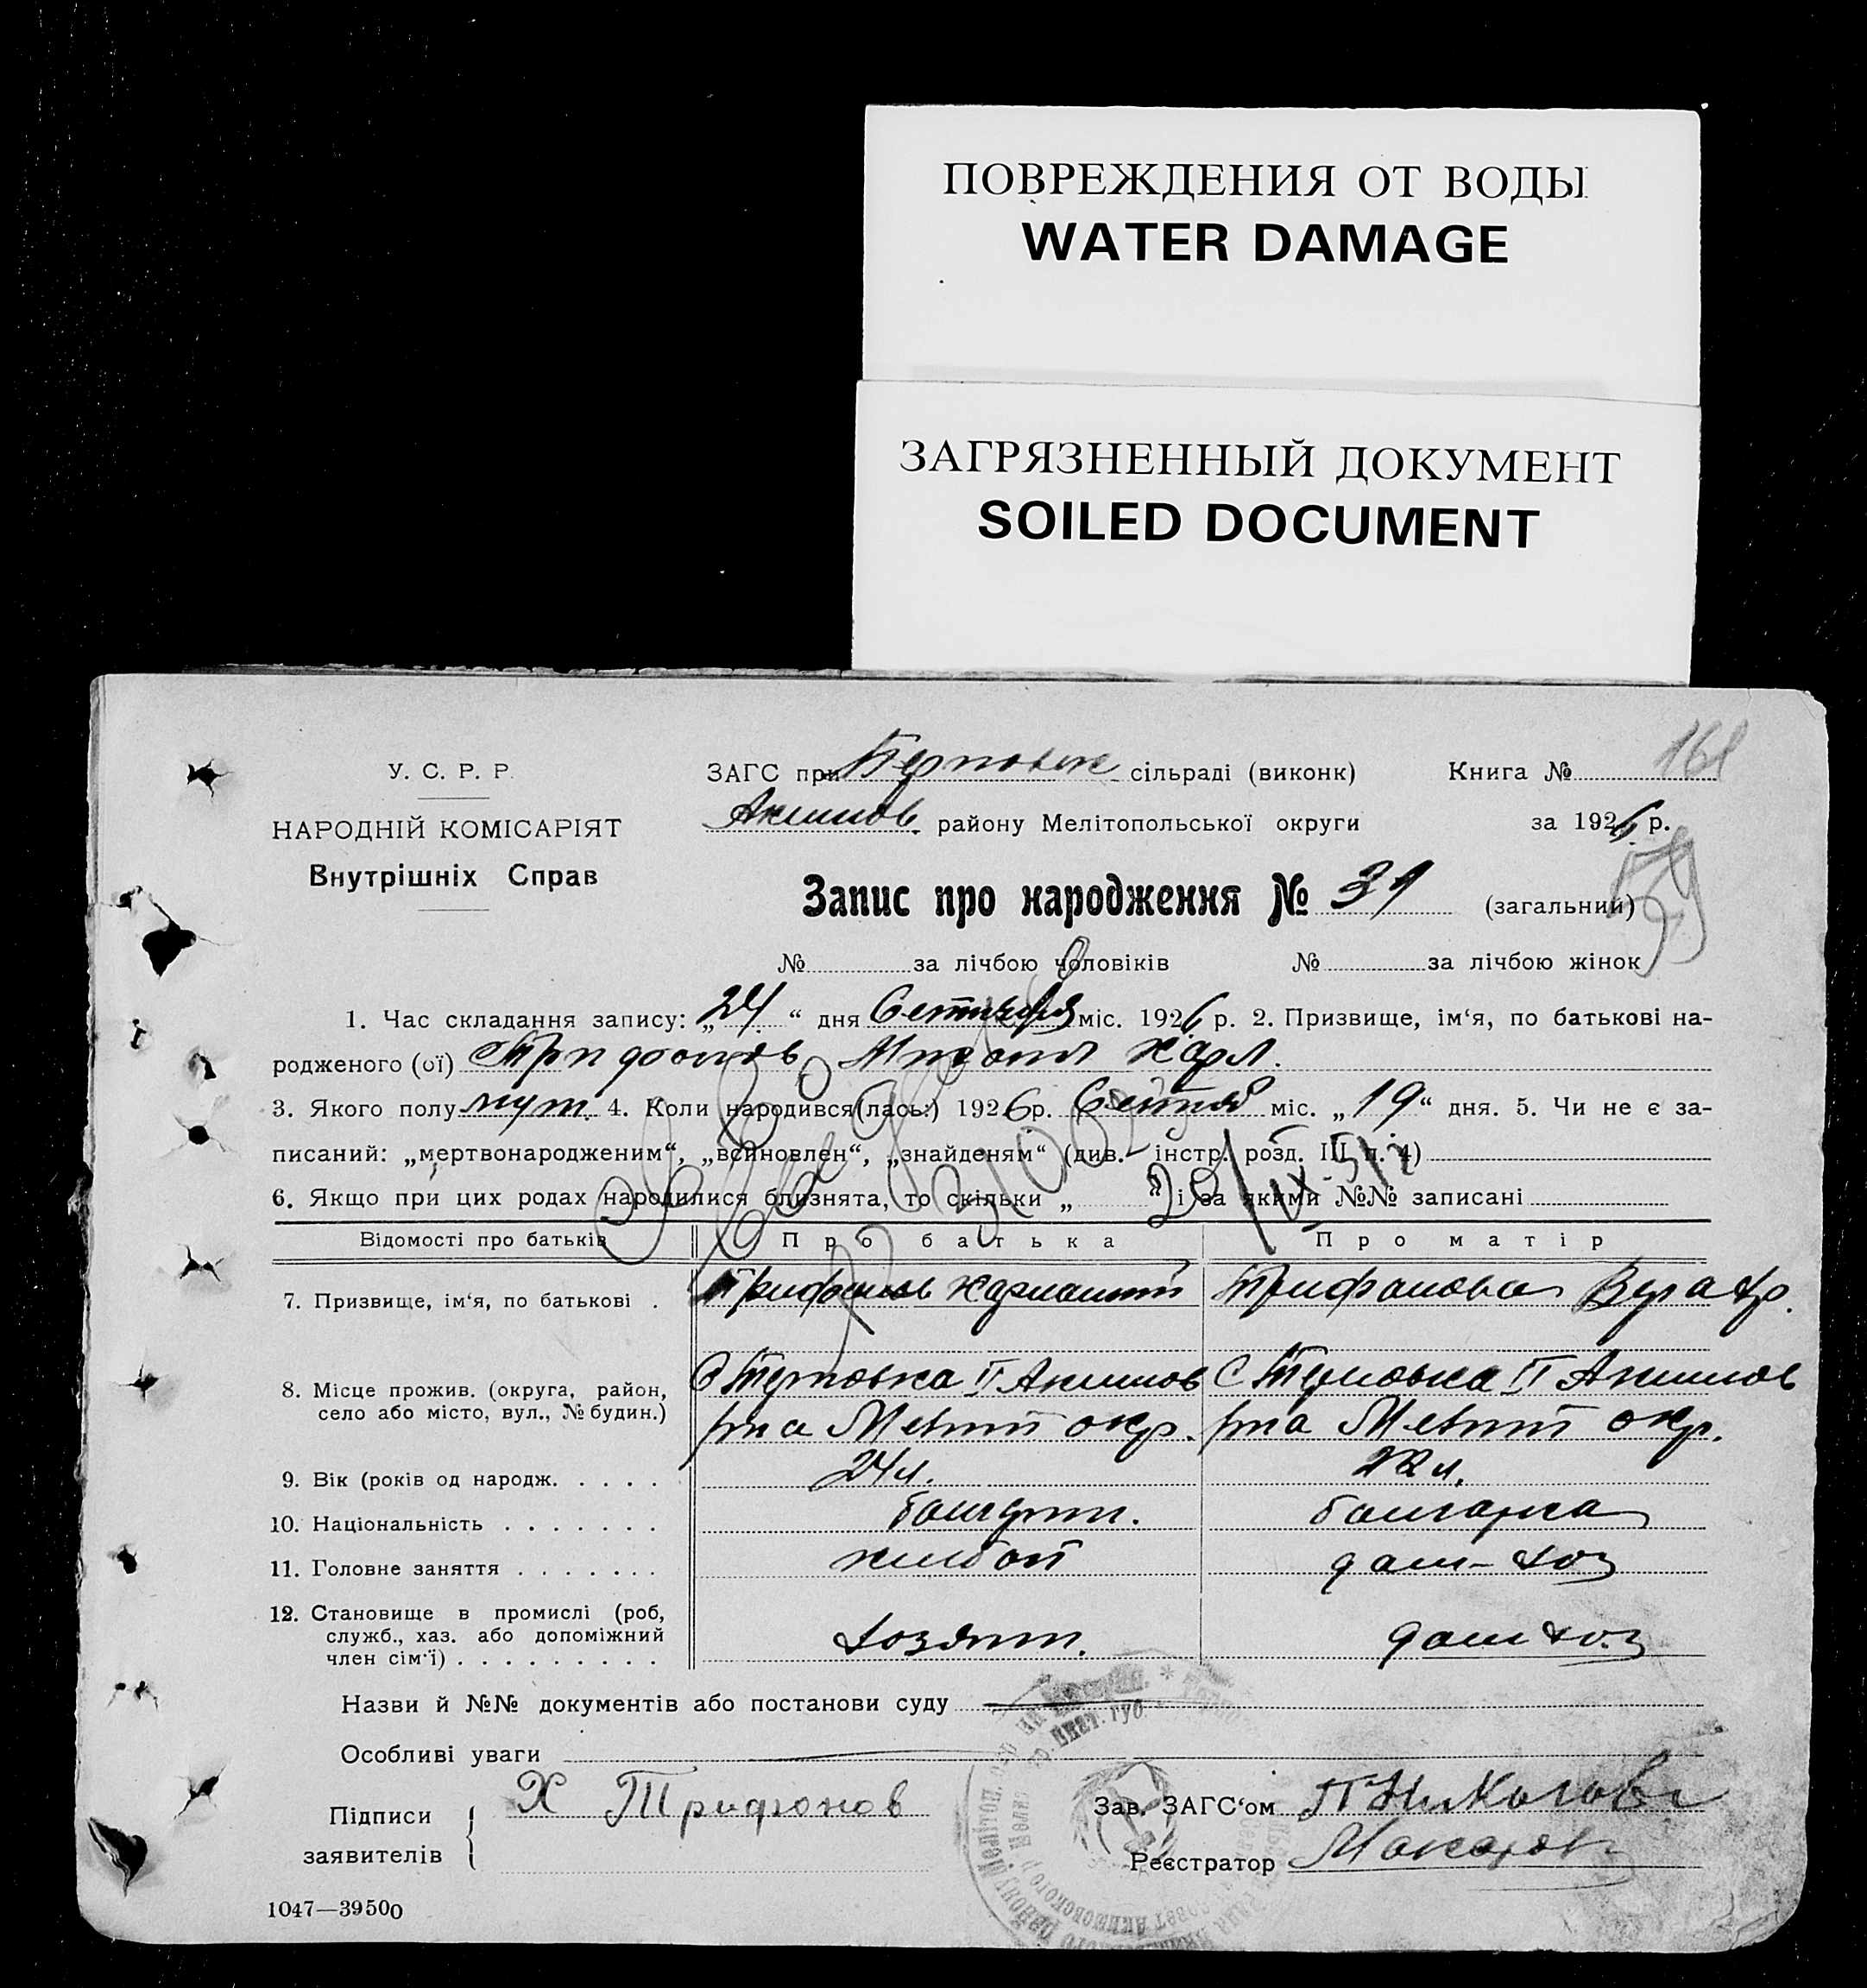 ПОВРЕЖДЕНИЯ ОТ ВОДЫ
WATER DAMAGE
ЗАГРЯЗНЕННЫЙ ДОКУМЕНТ
SOILED DOCUMENT
У. С. Р. Р.
НАРОДНІЙ КОМІСАРІЯТ
Внутрішніх Справ
ЗАГС при сільраді (виконк) Книга №
Акимов. району Мелітопольської округи за 1926 р.
Запис про народження № 31 (загальний)
59
№ за лічбою чоловіків № за лічбою жінок
1. Час складання запису: „24“ дня Сентября міс. 1926 р. 2. Призвище, ім‘я, по батькові на-
родженого (ої) Трифонов Харл.
3. Якого полу муж. 4. Коли народився(лась:) 1926 р. Сентяб міс. „19“ дня. 5. Чи не є за-
писаний: „мертвонародженим“, „всиновлен“, „знайденям“ (див. інстр. розд. III п. 4)
6. Якщо при цих родах народилися близнята, то скільки „ “ і за якими №№ записані
Відомості про батьків Про батька Про матір
7. Призвище, ім‘я, по батькові . Трифонов Харлампий Трифонова Вера Хр.
8. Місце прожив. (округа, район, село або місто, вул., № будин.) С Терновка II Акимов С Терновка II Акимов
р-на Мелит окр. р-на Мелит окр.
9. Вік (років од народж. . . . . 24 л. 22 л.
10. Національність . . . . . . . болгарин. болгарка
11. Головне заняття . . . . . . . хлебоп дом-хоз
12. Становище в промислі (роб, служб., хаз. або допоміжний член сім‘ї) . . . . . . . . . хозяин. дом хоз
Назви й №№ документів або постанови суду
Особливі уваги
Підписи заявителів Х Трифонов
Зав. ЗАГС‘ом
Реєстратор Макаров
1047—39500